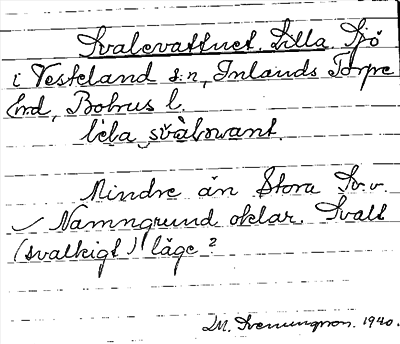 Svalevattnet. Lilla Sjö
i Vesteland s:n, Inlands Torpe
hrd, Bohus l.
lila svalswant.
Mindre än Stora Sv.v.
Namngrund oklar. Svalt
(svalkigt) läge?
M. Svenungsson. 1940.